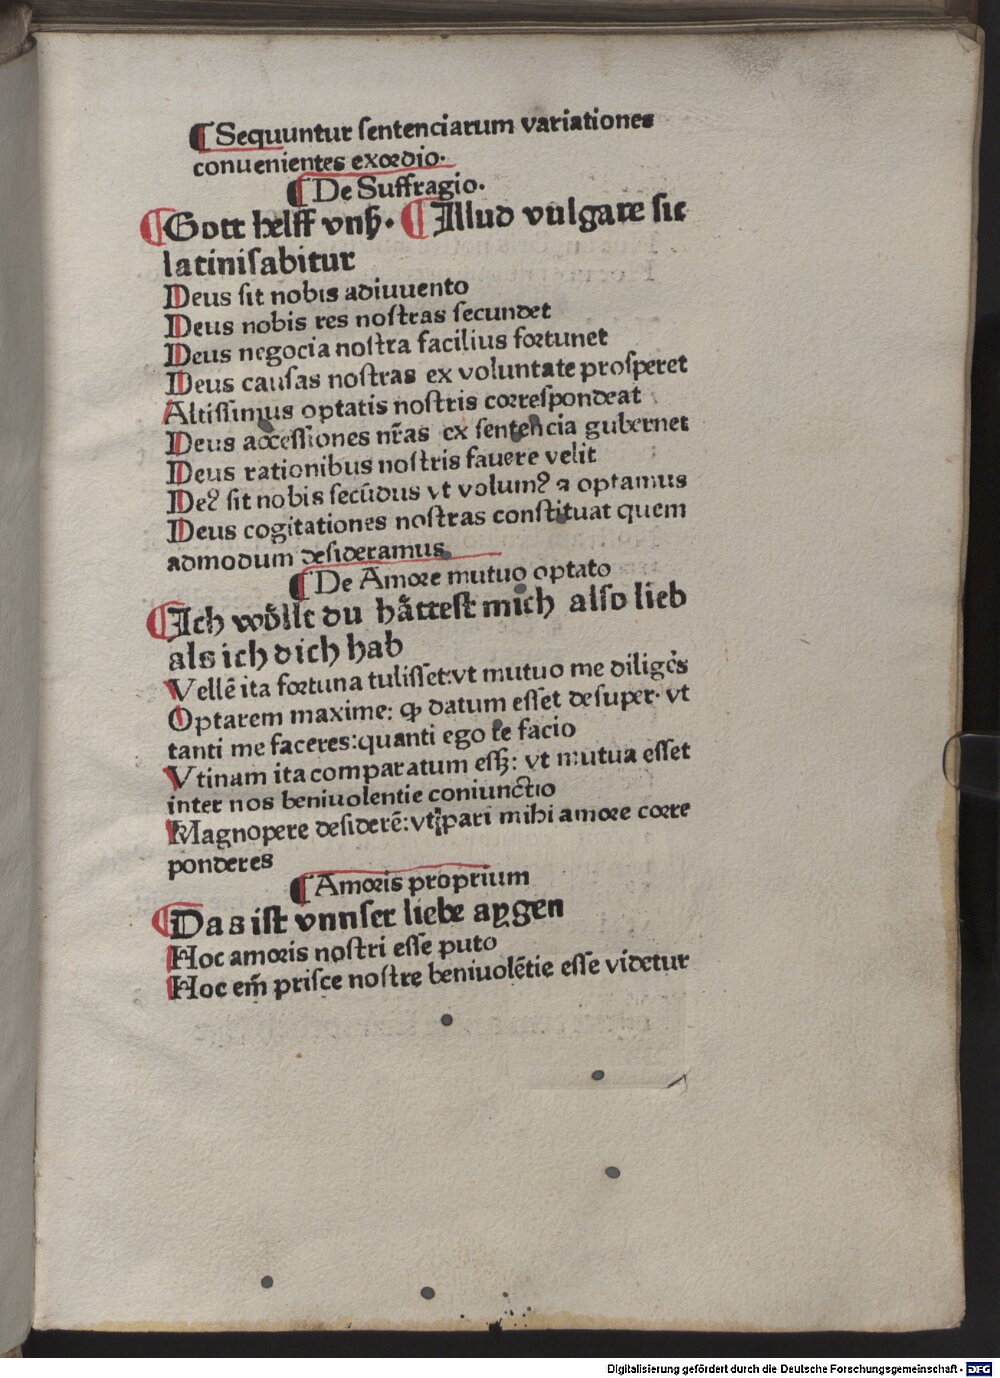 ¶ Sequuntur ſentenciarum variationes
conuenientes exordio.
¶ De Suffragio.
¶ Gott helff vnß. ¶ Illud vulgare ſic
latiniſabitur
Deus ſit nobis adiuuento
Deus nobis res noſtras ſecundet
Deus negocia noſtra facilius fortunet
Deus cauſas noſtras ex voluntate proſperet
Altiſſimus optatis noſtris correſpondeat
Deus acceſſiones nr̄as ex ſentencia gubernet
Deus rationibus noſtris fauere velit
Deꝰ ſit nobis ſecūdus vt volumꝰ ⁊ optamus
Deus cogitationes noſtras conſtituat quem
admodum deſideramus
¶ De Amore mutuo optato
¶ Ich woͤllt du haͤtteſt mich alſo lieb
als ich dich hab
Vellē ita fortuna tuliſſet:vt mutuo me diligēs
Optarem maxime: ꝙ datum eſſet deſuper. vt
tanti me faceres:quanti ego te facio
Vtinam ita comparatum eſſꝫ: vt mutua eſſet
inter nos beniuolentie coniunctio
Magnopere deſiderē:vti pari mihi amore corre
ponderes
¶ Amoris proprium
¶ Das iſt vnnſer liebe aygen
Hoc amoris noſtri eſſe puto
Hoc em̄ priſce noſtre beniuolētie eſſe videtur
Digitalisierung gefördert durch die Deutsche Forschungsgemeinschaft - DFG